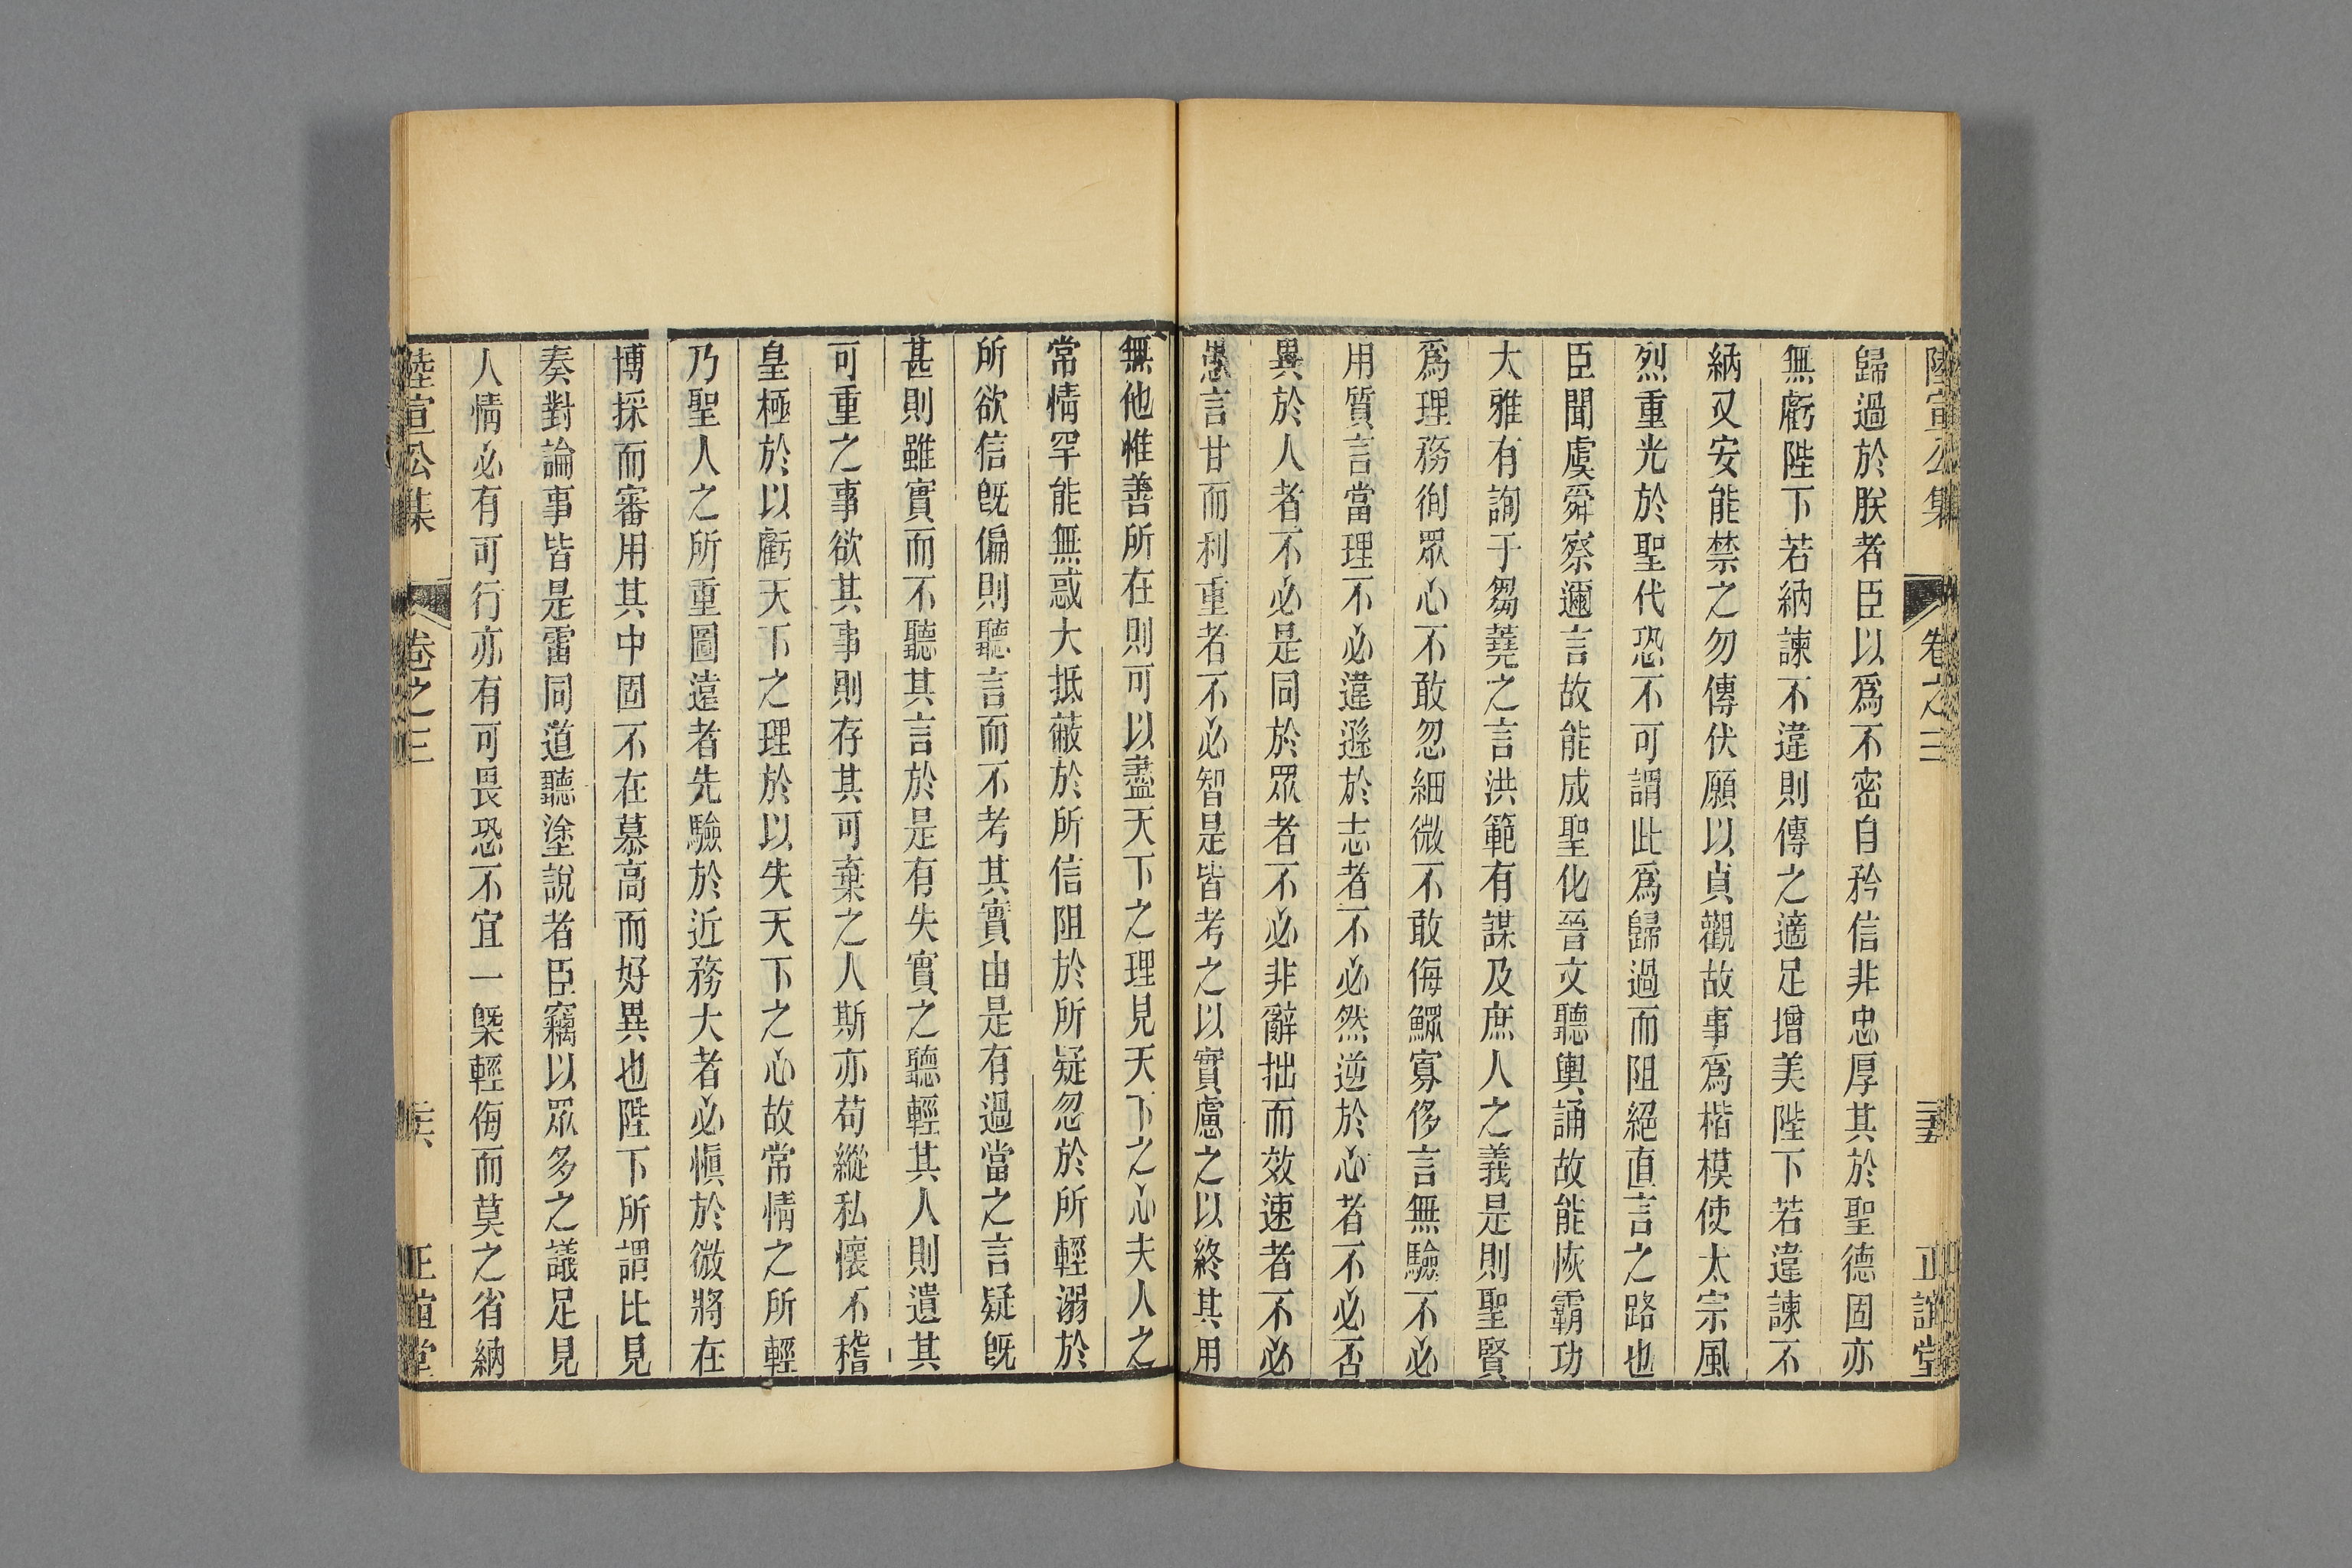 陸宣公集 卷之三 二十五 正誼堂
歸過於朕者臣以爲不密自矜信非忠厚其於聖德固亦
無虧陛下若納諫不違則傳之適足增美陛下若違諫不
納又安能禁之勿傳伏願以貞觀故事爲楷模使太宗風
烈重光於聖代恐不可謂此爲歸過而阻絕直言之路也
臣聞虞舜察邇言故能成聖化晉文聽輿誦故能恢霸功
大雅有詢于芻蕘之言洪範有謀及庶人之義是則聖賢
爲理務徇眾心不敢忽細微不敢侮鰥寡侈言無驗不必
用質言當理不必違遜於志者不必然逆於心者不必否
異於人者不必是同於眾者不必非辭拙而效速者不必
愚言甘而利重者不必智是皆考之以實慮之以終其用
無他惟善所在則可以盡天下之理見天下之心夫人之
常情罕能無惑大抵蔽於所信阻於所疑忽於所輕溺於
所欲信旣偏則聽言而不考其實由是有過當之言疑旣
甚則雖實而不聽其言於是有失實之聽輕其人則遺其
可重之事欲其事則存其可棄之人斯亦苟縱私懷不稽
皇極於以虧天下之理於以失天下之心故常情之所輕
乃聖人之所重圖遠者先驗於近務大者必愼於微將在
博採而審用其中固不在慕高而好異也陛下所謂比見
奏對論事皆是雷同道聽塗說者臣竊以眾多之議足見
人情必有可行亦有可畏恐不宜一槩輕侮而莫之省納
陸宣公集 卷之三 二十六 正誼堂